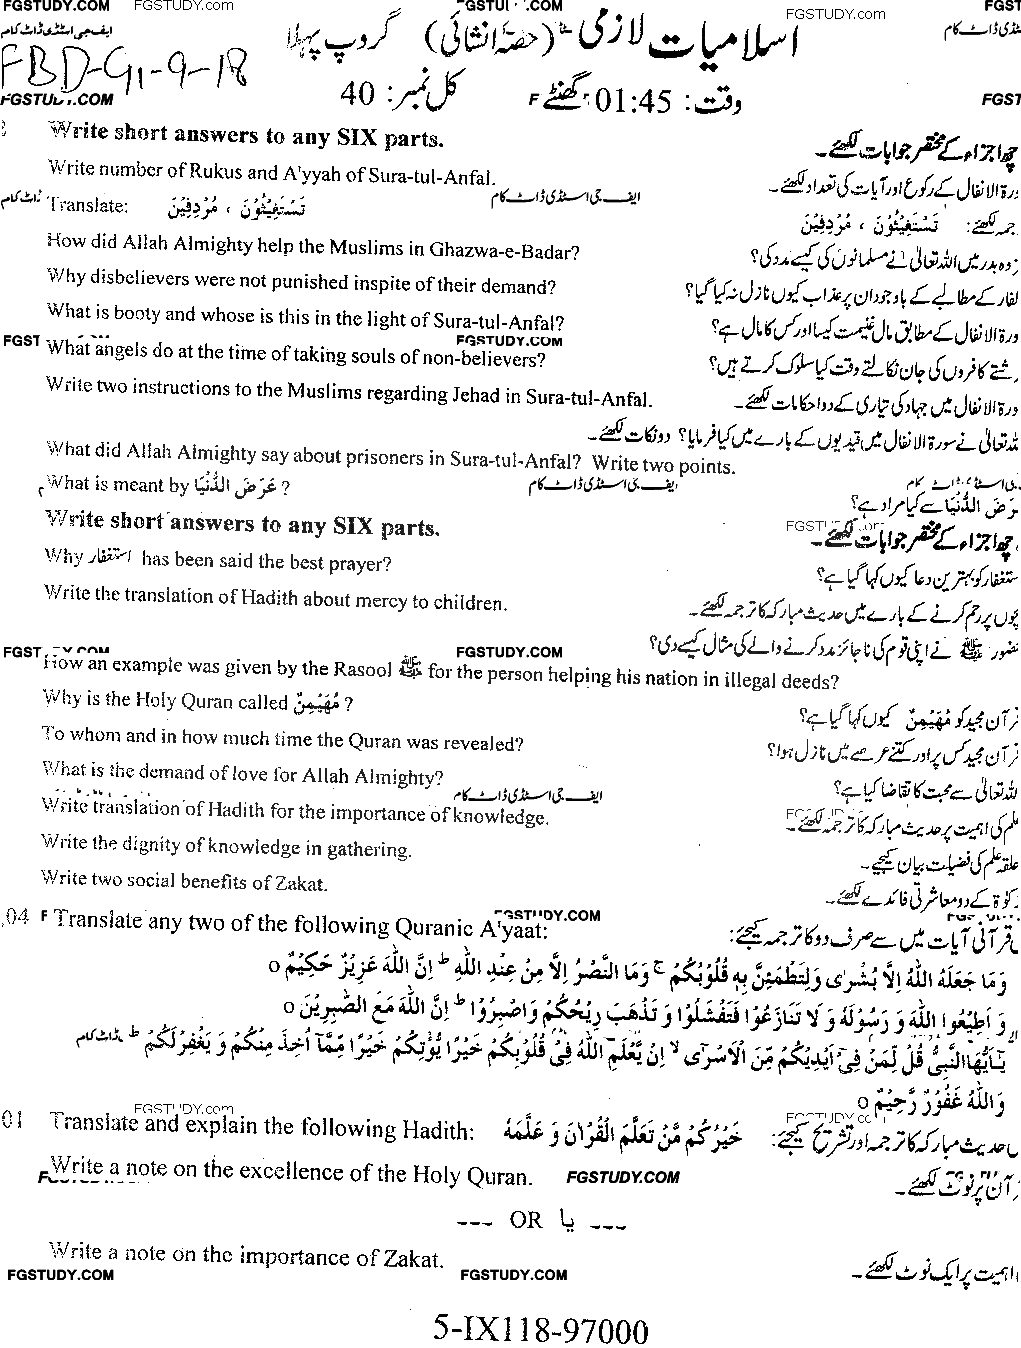 FGSTUDY.COM FGSTUDY.com FGSTU .COM FGSTUDY.com FGST
ایف جی اسٹڈی ڈاٹ کام
اسلامیات لازمی (حصہ انشائی) گروپ پہلا
FBD-G1-9-18
FGSTUDY.COM وقت: 01:45 گھنٹے F کل نمبر: 40 FGST
Write short answers to any SIX parts. چھ اجزاء کے مختصر جوابات لکھئے۔
Write number of Rukus and A'yyah of Sura-tul-Anfal. ورۃ الانفال کے رکوع اور آیات کی تعداد لکھئے۔
ایف جی اسٹڈی ڈاٹ کام
Translate: تَسْتَغِيْثُوْنَ ، مُرْدِفِيْنَ جمہ لکھئے: تَسْتَغِيْثُوْنَ ، مُرْدِفِيْنَ
How did Allah Almighty help the Muslims in Ghazwa-e-Badar? زوہ بدر میں اللہ تعالیٰ نے مسلمانوں کی کیسے مدد کی؟
Why disbelievers were not punished inspite of their demand? لفار کے مطالبے کے باوجود ان پر عذاب کیوں نازل نہ کیا گیا؟
What is booty and whose is this in the light of Sura-tul-Anfal? ورۃ الانفال کے مطابق مال غنیمت کیسا اور کس کا مال ہے؟
FGST FGSTUDY.COM
What angels do at the time of taking souls of non-believers? شتے کافروں کی جان نکالتے وقت کیا سلوک کرتے ہیں؟
Write two instructions to the Muslims regarding Jehad in Sura-tul-Anfal. ورۃ الانفال میں جہاد کی تیاری کے دو احکامات لکھئے۔
للہ تعالیٰ نے سورۃ الانفال میں قیدیوں کے بارے میں کیا فرمایا؟ دو نکات لکھئے۔
What did Allah Almighty say about prisoners in Sura-tul-Anfal? Write two points.
What is meant by عَرَضَ الدُّنْيَا ? ایف جی اسٹڈی ڈاٹ کام
رَضَ الدُّنْيَا سے کیا مراد ہے؟
Write short answers to any SIX parts. چھ اجزاء کے مختصر جوابات لکھئے۔
Why استغفار has been said the best prayer? ستغفار کو بہترین دعا کیوں کہا گیا ہے؟
Write the translation of Hadith about mercy to children. چوں پر رحم کرنے کے بارے میں حدیث مبارکہ کا ترجمہ لکھئے۔
FGST FGSTUDY.COM ضور ﷺ نے اپنی قوم کی ناجائز مدد کرنے والے کی مثال کیسے دی؟
How an example was given by the Rasool ﷺ for the person helping his nation in illegal deeds?
Why is the Holy Quran called مُهَيْمِنٌ ? رآن مجید کو مُهَيْمِنٌ کیوں کہا گیا ہے؟
To whom and in how much time the Quran was revealed? رآن مجید کس پر اور کتنے عرصے میں نازل ہوا؟
What is the demand of love for Allah Almighty? للہ تعالیٰ سے محبت کا تقاضا کیا ہے؟
ایف جی اسٹڈی ڈاٹ کام
Write translation of Hadith for the importance of knowledge. علم کی اہمیت پر حدیث مبارکہ کا ترجمہ لکھئے۔
Write the dignity of knowledge in gathering. علقہ علم کی فضیلت بیان کیجیے۔
Write two social benefits of Zakat. کوٰۃ کے دو معاشرتی فائدے لکھئے۔
FGSTUDY.COM
04 F Translate any two of the following Quranic A'yaat: قرآنی آیات میں سے صرف دو کا ترجمہ کیجیئے:
وَمَا جَعَلَهُ اللّٰهُ اِلَّا بُشْرٰى وَلِتَطْمَئِنَّ بِهٖ قُلُوْبُكُمْ ۚ وَمَا النَّصْرُ اِلَّا مِنْ عِنْدِ اللّٰهِ ؕ اِنَّ اللّٰهَ عَزِيْزٌ حَكِيْمٌ o
وَ اَطِيْعُوا اللّٰهَ وَ رَسُوْلَهٗ وَ لَا تَنَازَعُوْا فَتَفْشَلُوْا وَ تَذْهَبَ رِيْحُكُمْ وَاصْبِرُوْا ؕ اِنَّ اللّٰهَ مَعَ الصّٰبِرِيْنَ o
يٰٓاَيُّهَا النَّبِىُّ قُلْ لِّمَنْ فِىْٓ اَيْدِيْكُمْ مِّنَ الْاَسْرٰٓى ۙ اِنْ يَّعْلَمِ اللّٰهُ فِىْ قُلُوْبِكُمْ خَيْرًا يُّؤْتِكُمْ خَيْرًا مِّمَّآ اُخِذَ مِنْكُمْ وَ يَغْفِرْ لَكُمْ ؕ
وَاللّٰهُ غَفُوْرٌ رَّحِيْمٌ o
FGSTUDY.com
01 Translate and explain the following Hadith: خَيْرُكُمْ مَّنْ تَعَلَّمَ الْقُرْاٰنَ وَ عَلَّمَهٗ حدیث مبارکہ کا ترجمہ اور تشریح کیجیئے:
Write a note on the excellence of the Holy Quran. FGSTUDY.COM رآن پر نوٹ لکھئے۔
--- OR یا ---
Write a note on the importance of Zakat. اہمیت پر ایک نوٹ لکھئے۔
FGSTUDY.COM FGSTUDY.COM
5-IX118-97000